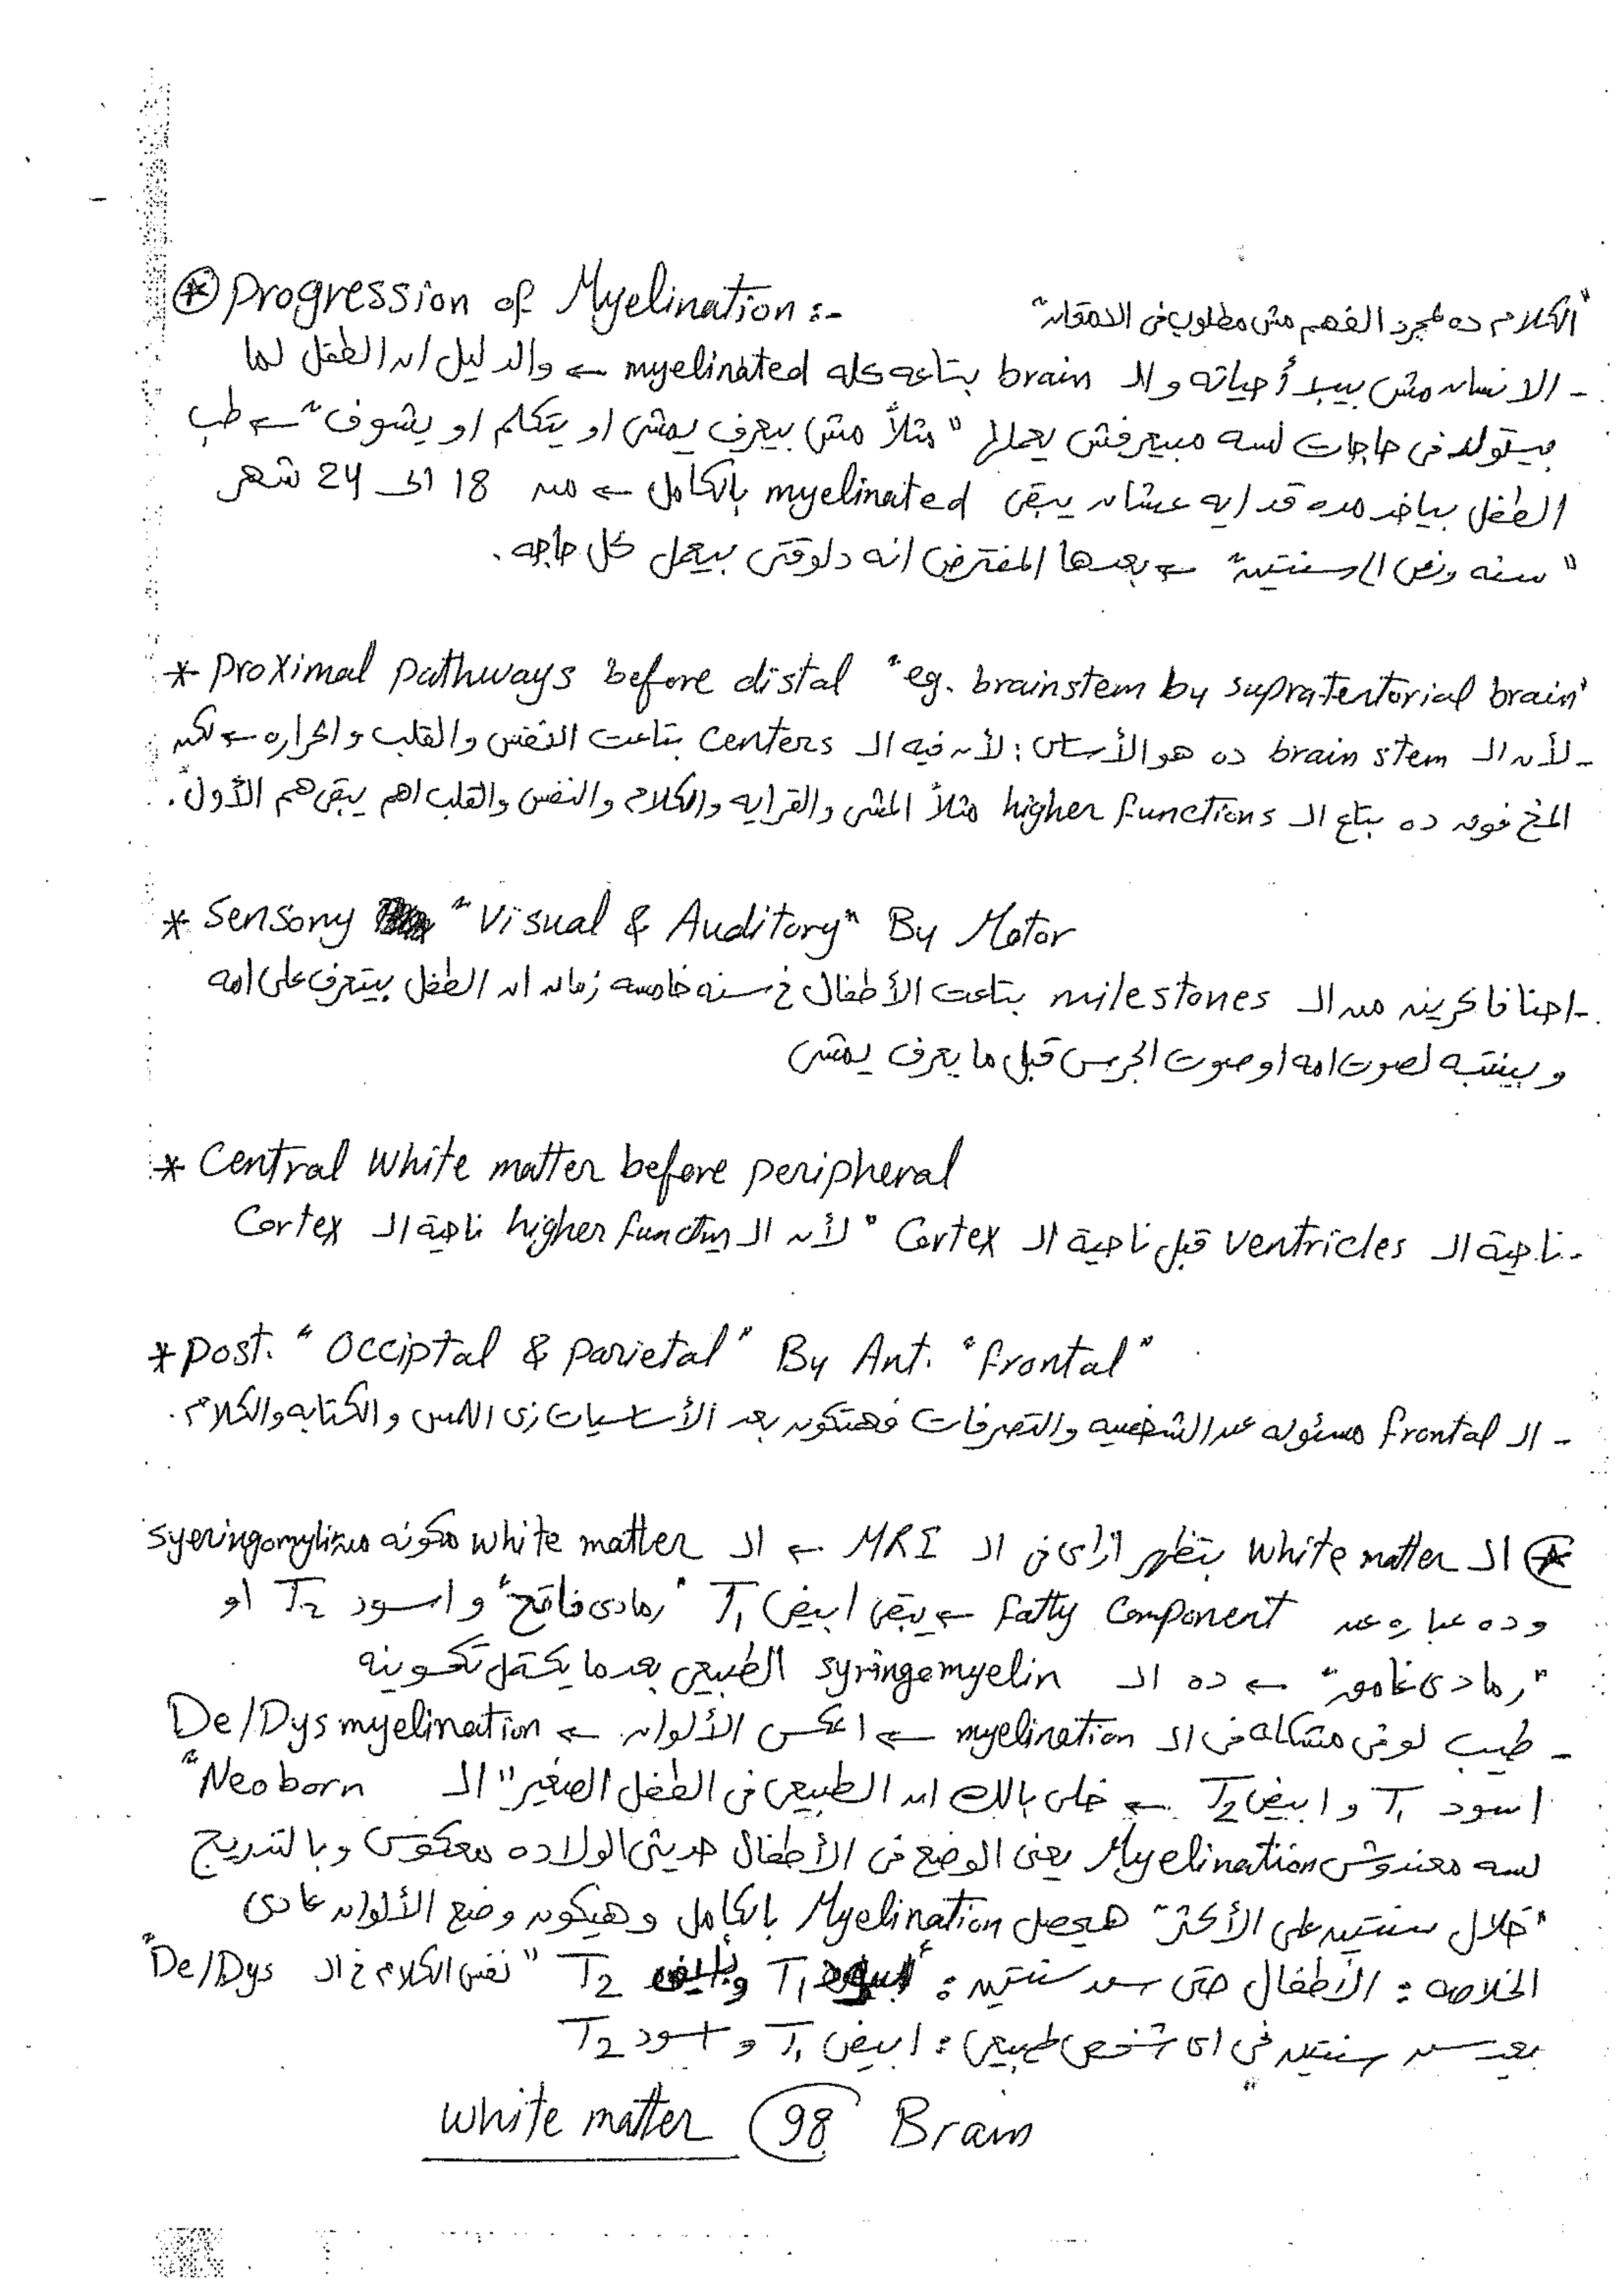 ⊛ Progression of Myelination :- "الكلام ده لمجرد الفهم مش مطلوب فى الامتحان"
- الانسان مش بيبدأ حياته و الـ brain بتاعه كله myelinated ← والدليل ان الطفل لما
بيتولد فى حاجات لسه مبيعرفش يعملها "مثلاً مش بيعرف يمشى او يتكلم او يشوف" ← طب
الطفل بياخد مده قد ايه عشان يبقى myelinated بالكامل ← من 18 الى 24 شهر
"سنه ونص الى سنتين" ← بعدها المفترض انه دلوقتى بيعمل كل حاجه .
* Proximal pathways before distal "eg. brainstem by supratentorial brain"
- لأن الـ brain stem ده هو الأساس : لأن فيه الـ centers بتاعت النفس والقلب والحراره ← لكن
المخ فوق ده بتاع الـ higher functions مثلاً المشى والقرايه والكلام والنفس والقلب اهم يبقى هم الأول .
* Sensory "Visual & Auditory" By Motor
- احنا فاكرين من الـ milestones بتاعت الأطفال فى سنه خامسه زمان ان الطفل بيتعرف على امه
وبينتبه لصوت امه او صوت الجرس قبل ما يعرف يمشى
* Central White matter before peripheral
- ناحية الـ ventricles قبل ناحية الـ Cortex "لأن الـ higher function ناحية الـ Cortex
* Post. "Occiptal & parietal" By Ant. "frontal"
- الـ frontal مسئوله عن الشخصيه والتصرفات فهتكون بعد الأساسيات زى اللمس والكتابه والكلام .
⊛ الـ white matter بتظهر ازاى فى الـ MRI ← الـ white matter مكونه من syeringomylin
وده عباره عن Fatty Component ← يبقى ابيض T1 "رمادى فاتح" و اسود T2 او
"رمادى غامق" ← ده الـ syringomyelin الطبيعى بعد ما يكتمل تكوينه
- طيب لو فى مشكله فى الـ myelination ← اعكس الألوان ← De/Dysmyelination
اسود T1 و ابيض T2 ← خلى بالك ان الطبيعى فى الطفل الصغير "الـ Neoborn"
لسه معندوش Myelination يعنى الوضع فى الأطفال حديثى الولاده معكوس وبالتدريج
"خلال سنتين على الأكثر" هيحصل Myelination بالكامل وهيكون وضع الألوان عادى
الخلاصه : الأطفال حتى سن سنتين : أسود T1 وأبيض T2 "نفس الكلام فى الـ De/Dys"
بعد سن سنتين فى اى شخص طبيعى : ابيض T1 و اسود T2
white matter 98 Brain